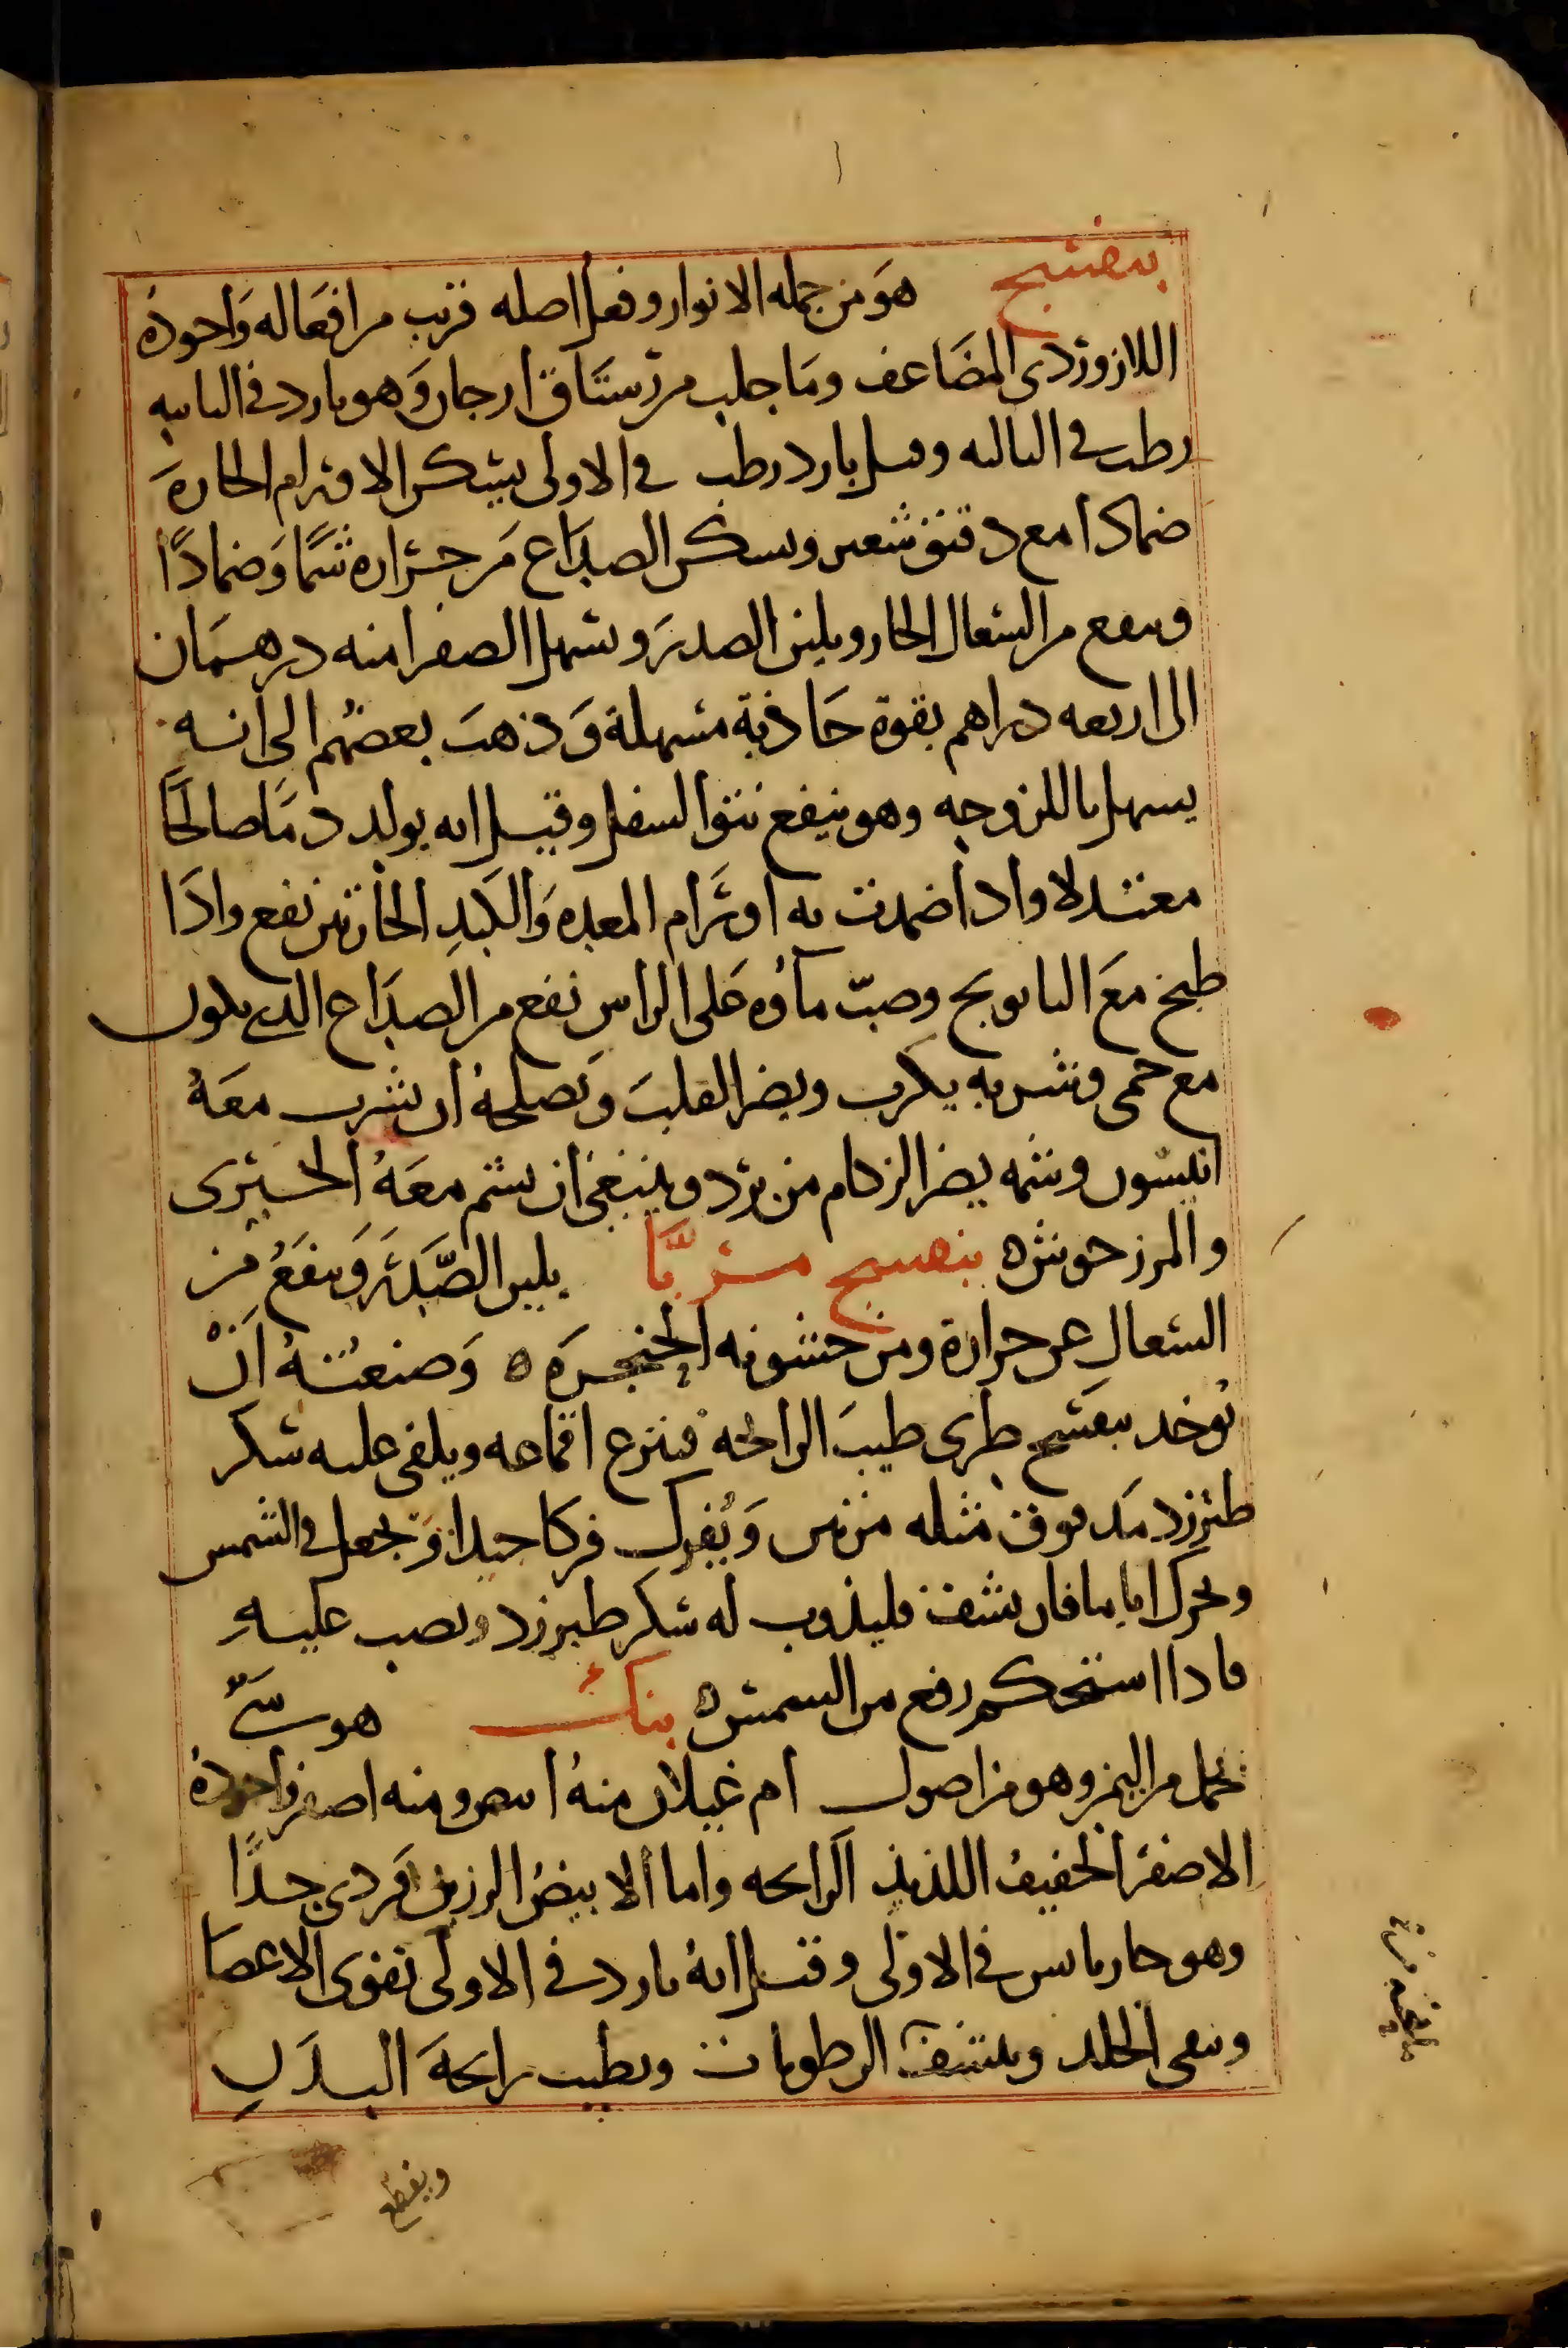 بنفسج هو من جمله الانوار وفعل اصله قريب من افعاله واجوده
اللازوردى المضاعف وما جلب من رستاق ارجان وهو بارد فى الثانيه
رطب فى الثالثه وقيل بارد رطب فى الاولى يسكن الاورام الحارة
ضمادا مع دقيق شعير ويسكن الصداع من حرارة شمًا وضمادًا
وينفع من السعال الحار ويلين الصدر ويسهل الصفرا منه درهمان
الى اربعه دراهم بقوة جاذبة مسهلة وذهب بعضهم الى انه
يسهل باللزوجه وهو ينفع نتوا السفل وقيل انه يولد دمًا صالحًا
معتدلا واذا ضمدت به اورام المعده والكبدِ الحارتين نفع واذا
طبخ مع البابونج وصبّ ماؤه على الراس نفع من الصداع الذى يكون
مع حمى وشربه يكرب ويضر القلب ويصلحه ان يشرب معهُ
انيسون وشمه يضر الزكام من برد وينبغى ان يشم معهُ الخيرى
والمرزجوش ه بنفسج مربَّا يلين الصَّدرَ وينفعُ من
السعالِ عن حرارة ومن خشونه الحنجرَه ه وصنعتهُ اَنْ
يُوخذ بنفسج طرى طيب الرائحه فينزع اقماعه ويلقى عليه سكر
طبرزد مدقوق مثله مرتين ويُفرك فركا جيدا ويجعل فى الشمس
ويحرك اياما فان نشف فليذوب له سكر طبرزد ويصب عليهِ
فاذا استحكم رفع من الشمس ه بنك هو شىّ
يحمل من اليمن وهو من اصول ام غيلان منهُ اسمر ومنه اصفر واجودهُ
الاصفر الخفيف اللذيذ الرايحه واما الابيض الرزين فردى جدًا
وهو حار يابس فى الاولى وقيل انهُ بارد فى الاولى يقوى الاعضا
وينقى الجلد وينشف الرطوبات ويطيب رايحهَ البدنِ
ويقطع